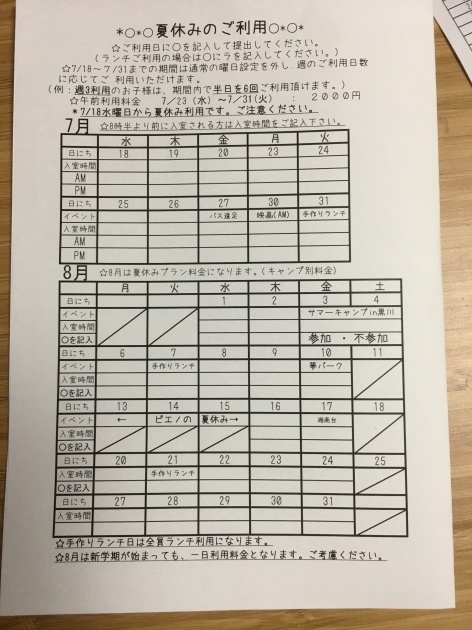 *○*○夏休みのご利用○*○*
☆ご利用日に○を記入して提出してください。
(ランチご利用の場合は○にラを記入してください。)
☆7/18~7/31までの期間は通常の曜日設定を外し、週のご利用日数
に応じてご利用いただけます。
(例:週3利用のお子様は、期間内で半日を6回ご利用頂けます。)
☆午前利用料金 7/23(水)~7/31(火) 2000円
*7/18水曜日から夏休み利用です。ご注意ください。
7月 ☆8時半より前に入室される方は入室時間をご記入下さい。
水 木 金 月 火
日にち 18 19 20 23 24
入室時間
AM
PM
日にち 25 26 27 30 31
イベント バス遠足 映画(AM) 手作りランチ
入室時間
AM
PM
8月 ☆8月は夏休みプラン料金になります。(キャンプ別料金)
月 火 水 木 金 土
日にち 1 2 3 4
イベント サマーキャンプin黒川
入室時間
○を記入 参加 ・ 不参加
日にち 6 7 8 9 10 11
イベント 手作りランチ 夢パーク
入室時間
○を記入
日にち 13 14 15 16 17 18
イベント ← ピエノの 夏休み→ 湘南台
入室時間
○を記入
日にち 20 21 22 23 24 25
入室時間 手作りランチ
○を記入
日にち 27 28 29 30 31
入室時間
☆手作りランチ日は全員ランチ利用になります。
☆8月は新学期が始まっても、一日利用料金となります。ご考慮ください。